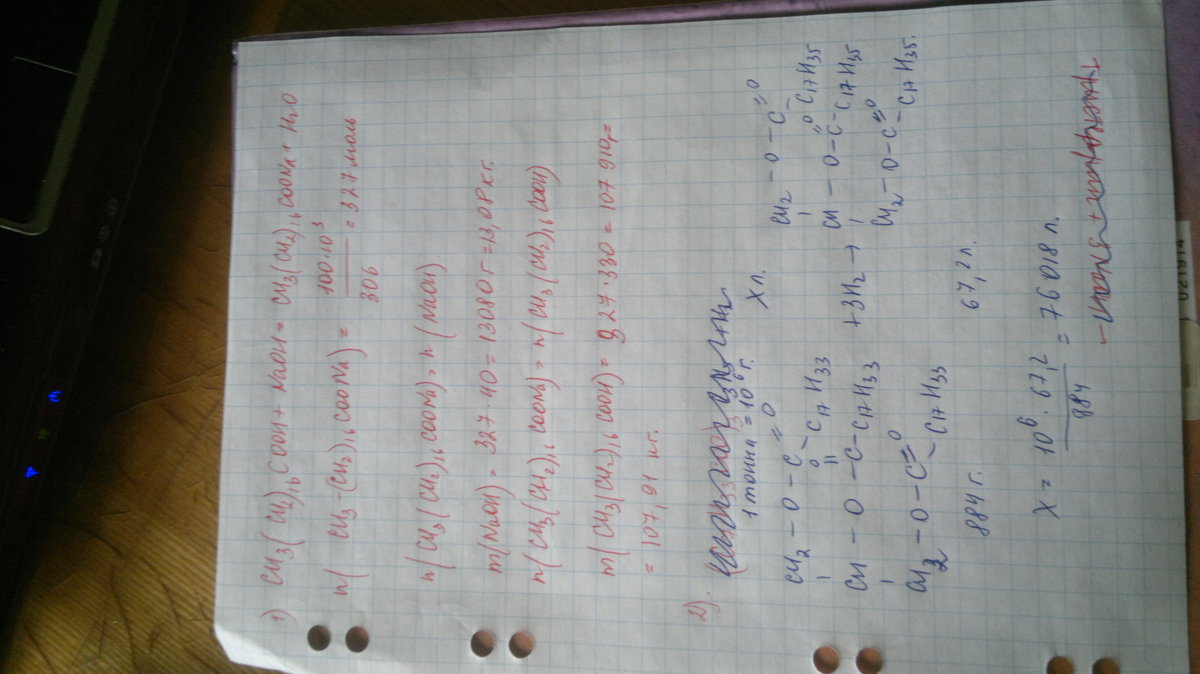 1) CH3(CH2)16COOH + NaOH = CH3(CH2)16COONa + H2O
n( CH3-(CH2)16COONa) = 100·10³ / 306 = 327 моль
n(CH3(CH2)16COONa) = n(NaOH)
m(NaOH) = 327·40 = 13080 г = 13,08 кг.
n(CH3(CH2)16COONa) = n(CH3(CH2)16COOH)
m(CH3(CH2)16COOH) = 327·330 = 107910г =
= 107,91 кг.
2).
1 тонна = 10⁶ г. X л.
CH2 - O - C =O - C17H33 CH2 - O - C =O - C17H35
CH - O - C =O - C17H33 + 3H2 → CH - O - C =O - C17H35
CH2 - O - C =O - C17H33 CH2 - O - C =O - C17H35.
884 г. 67,2 л.
X = 10⁶ · 67,2 / 884 = 76018 л.
021914